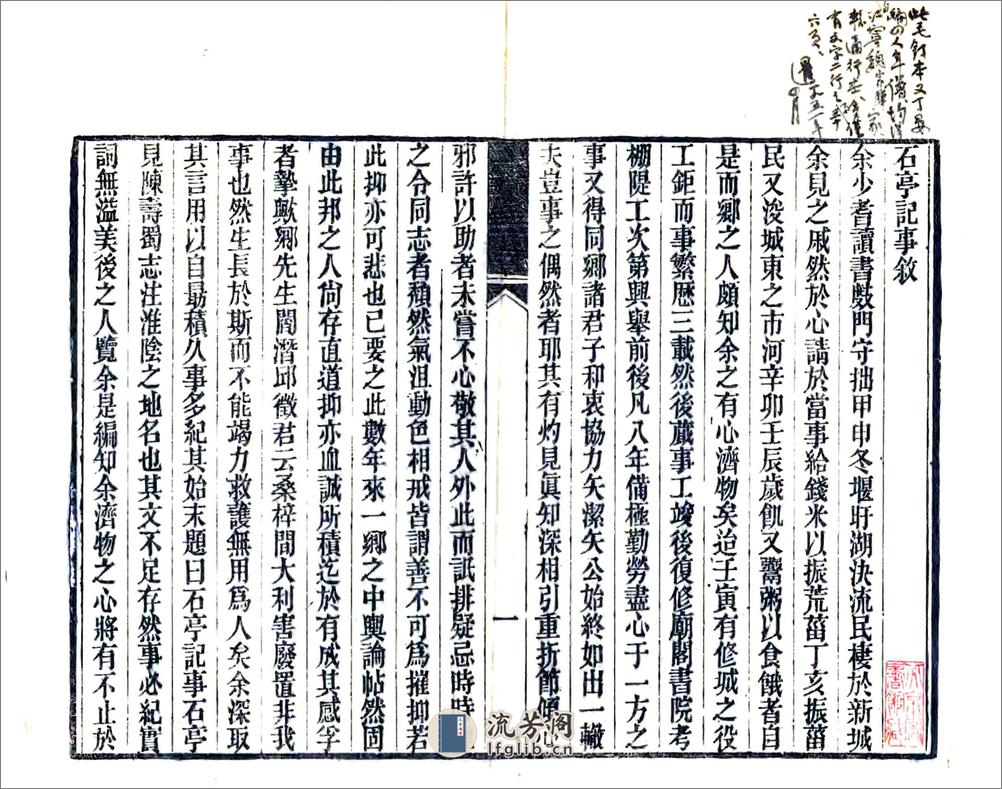 石亭記事敘
余少耆讀書㪇門守拙甲申冬堰盱湖決流民棲於新城
余見之戚然於心請於當事給錢米以振荒菑丁亥振菑
民又浚城東之市河辛卯壬辰歲飢又鬻粥以食餓者自
是而鄉之人頗知余之有心濟物矣迨壬寅有修城之役
工鉅而事繁歴三載然後蕆事工竣後復修廟閣書院考
棚隄工次第興舉前後凡八年備極勤勞盡心于一方之
事又得同鄉諸君子和衷協力矢潔矢公始終如出一轍
夫豈事之偶然者耶其有灼見眞知深相引重折節
一
邪許以助者未嘗不心敬其人外此而詆排疑忌時時
之令同志者頽然氣沮動色相戒皆謂善不可爲摧抑若
此抑亦可悲也已要之此數年來一鄉之中輿論帖然固
由此邦之人尙存直道抑亦血誠所積迄於有成其感孚
者摯歟鄉先生閻潛邱徵君云桑梓間大利害廢置非我
事也然生長於斯而不能竭力救護無用爲人矣余深取
其言用以自朂積久事多紀其始末題曰石亭記事石亭
見陳壽蜀志注淮陰之地名也其文不足存然事必紀實
詞無溢美後之人覽余是編知余濟物之心將有不止於
流芳阁
lfglib.cn